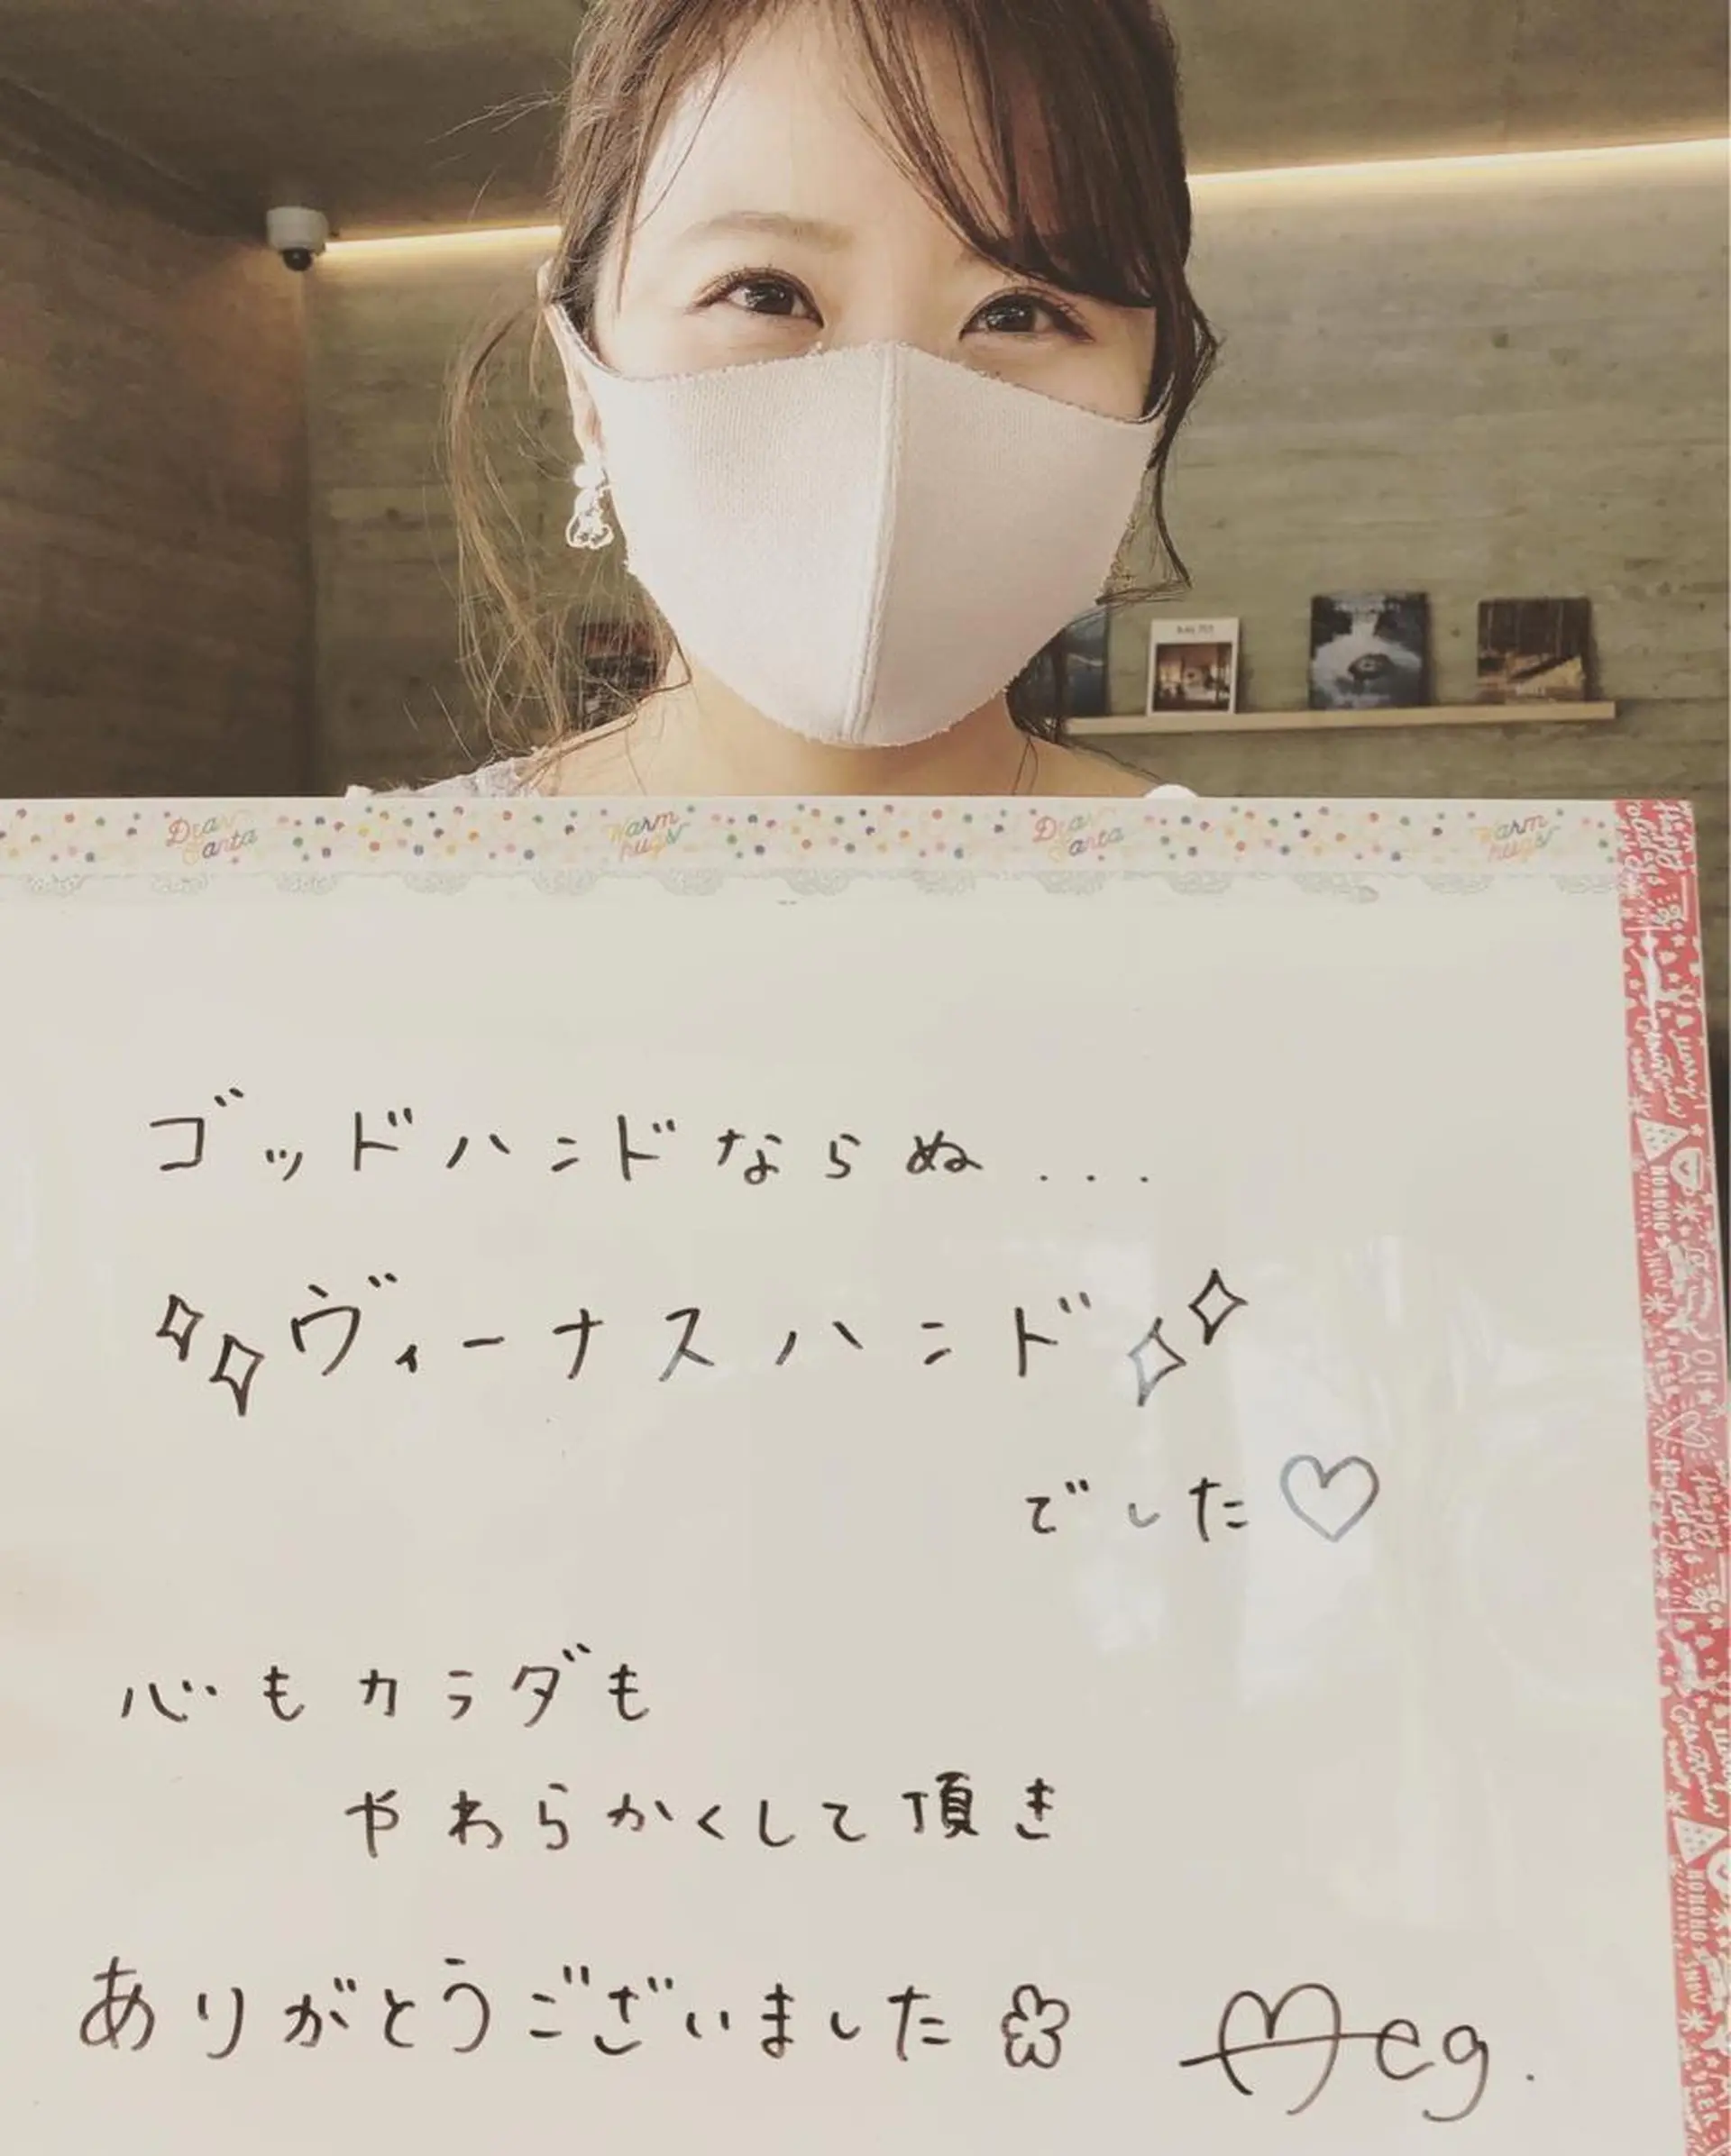 Dear Santa
Warm hugs
Dear Santa
Warm hugs
ゴッドハンドならぬ...
ヴィーナスハンド
でした♡
心もカラダも
やわらかくして頂き
ありがとうございました
Meg.
HOHOHO
HOHOHO